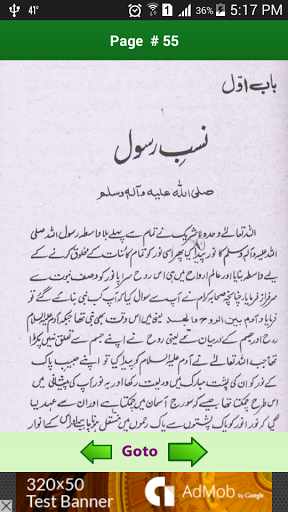 41° 36% 5:17 PM
Page # 55
باب اوّل
نسبِ رسول
صلی اللہ علیہ وآلہ وسلم
اللہ تعالےٰ وحدہ لا شریک نے تمام سے پہلے بلا واسطہ رسول اللہ صلی
اللہ علیہ وآلہ وسلم کا نور پیدا کیا پھر اسی نور کو تمام کائنات کے مخلوق کرنے کے
لیے واسطہ بنایا اور عالم ارواح میں ہی اس روح سراپا نور کو وصف نبوت سے
سرفراز فرمایا۔ چنانچہ صحابہ کرام نے آپ سے سوال کیا کہ آپ کب نبی بنائے گئے تو
فرمایا وآدم بین الروح والجسد یعنی میں اس وقت بھی نبی تھا جبکہ آدم علیہ السلام
روح اور جسم کے درمیان تھے یعنی روح نے اپنے جسم سے تعلق نہیں پکڑا
تھا جب اللہ تعالےٰ نے آدم علیہ السلام کو پیدا کیا تو اپنے حبیب پاک
کے نور کو ان کی پشت مبارک میں ودیعت رکھا اور وہ نور آپ کی پیشانی میں
اس طرح چمکتا تھا جیسے کہ سورج آسمان میں چمکتا ہے اور ان سے عہد لیا
گیا کہ نور انور کو پاک پشتوں سے پاک رحموں میں منتقل کے انوار
Goto
320x50
Test Banner
AdMob by Google